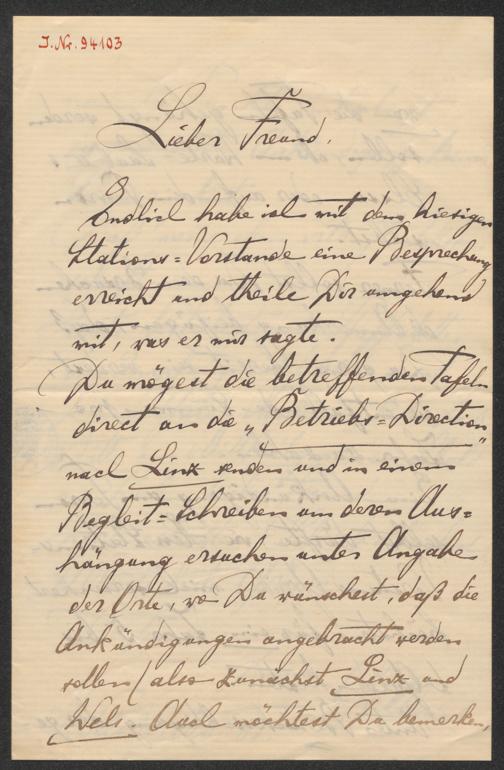 J.Nr. 94103
Lieber Freund.
Endlich habe ich mit dem hiesigen
Stations=Vorstande eine Besprechung
erreicht und theile Dir umgehend
mit, was er mir sagte.
Du mögest die betreffenden Tafeln
direct an die „Betriebs=Direction"
nach Linz senden und in einem
Begleit=Schreiben um deren Aus=
hängung ersuchen unter Angabe
der Orte, wo Du wünschest, daß die
Ankündigungen angebracht werden
sollen (also zunächst Linz und
Wels. Auch möchtest Du bemerken,